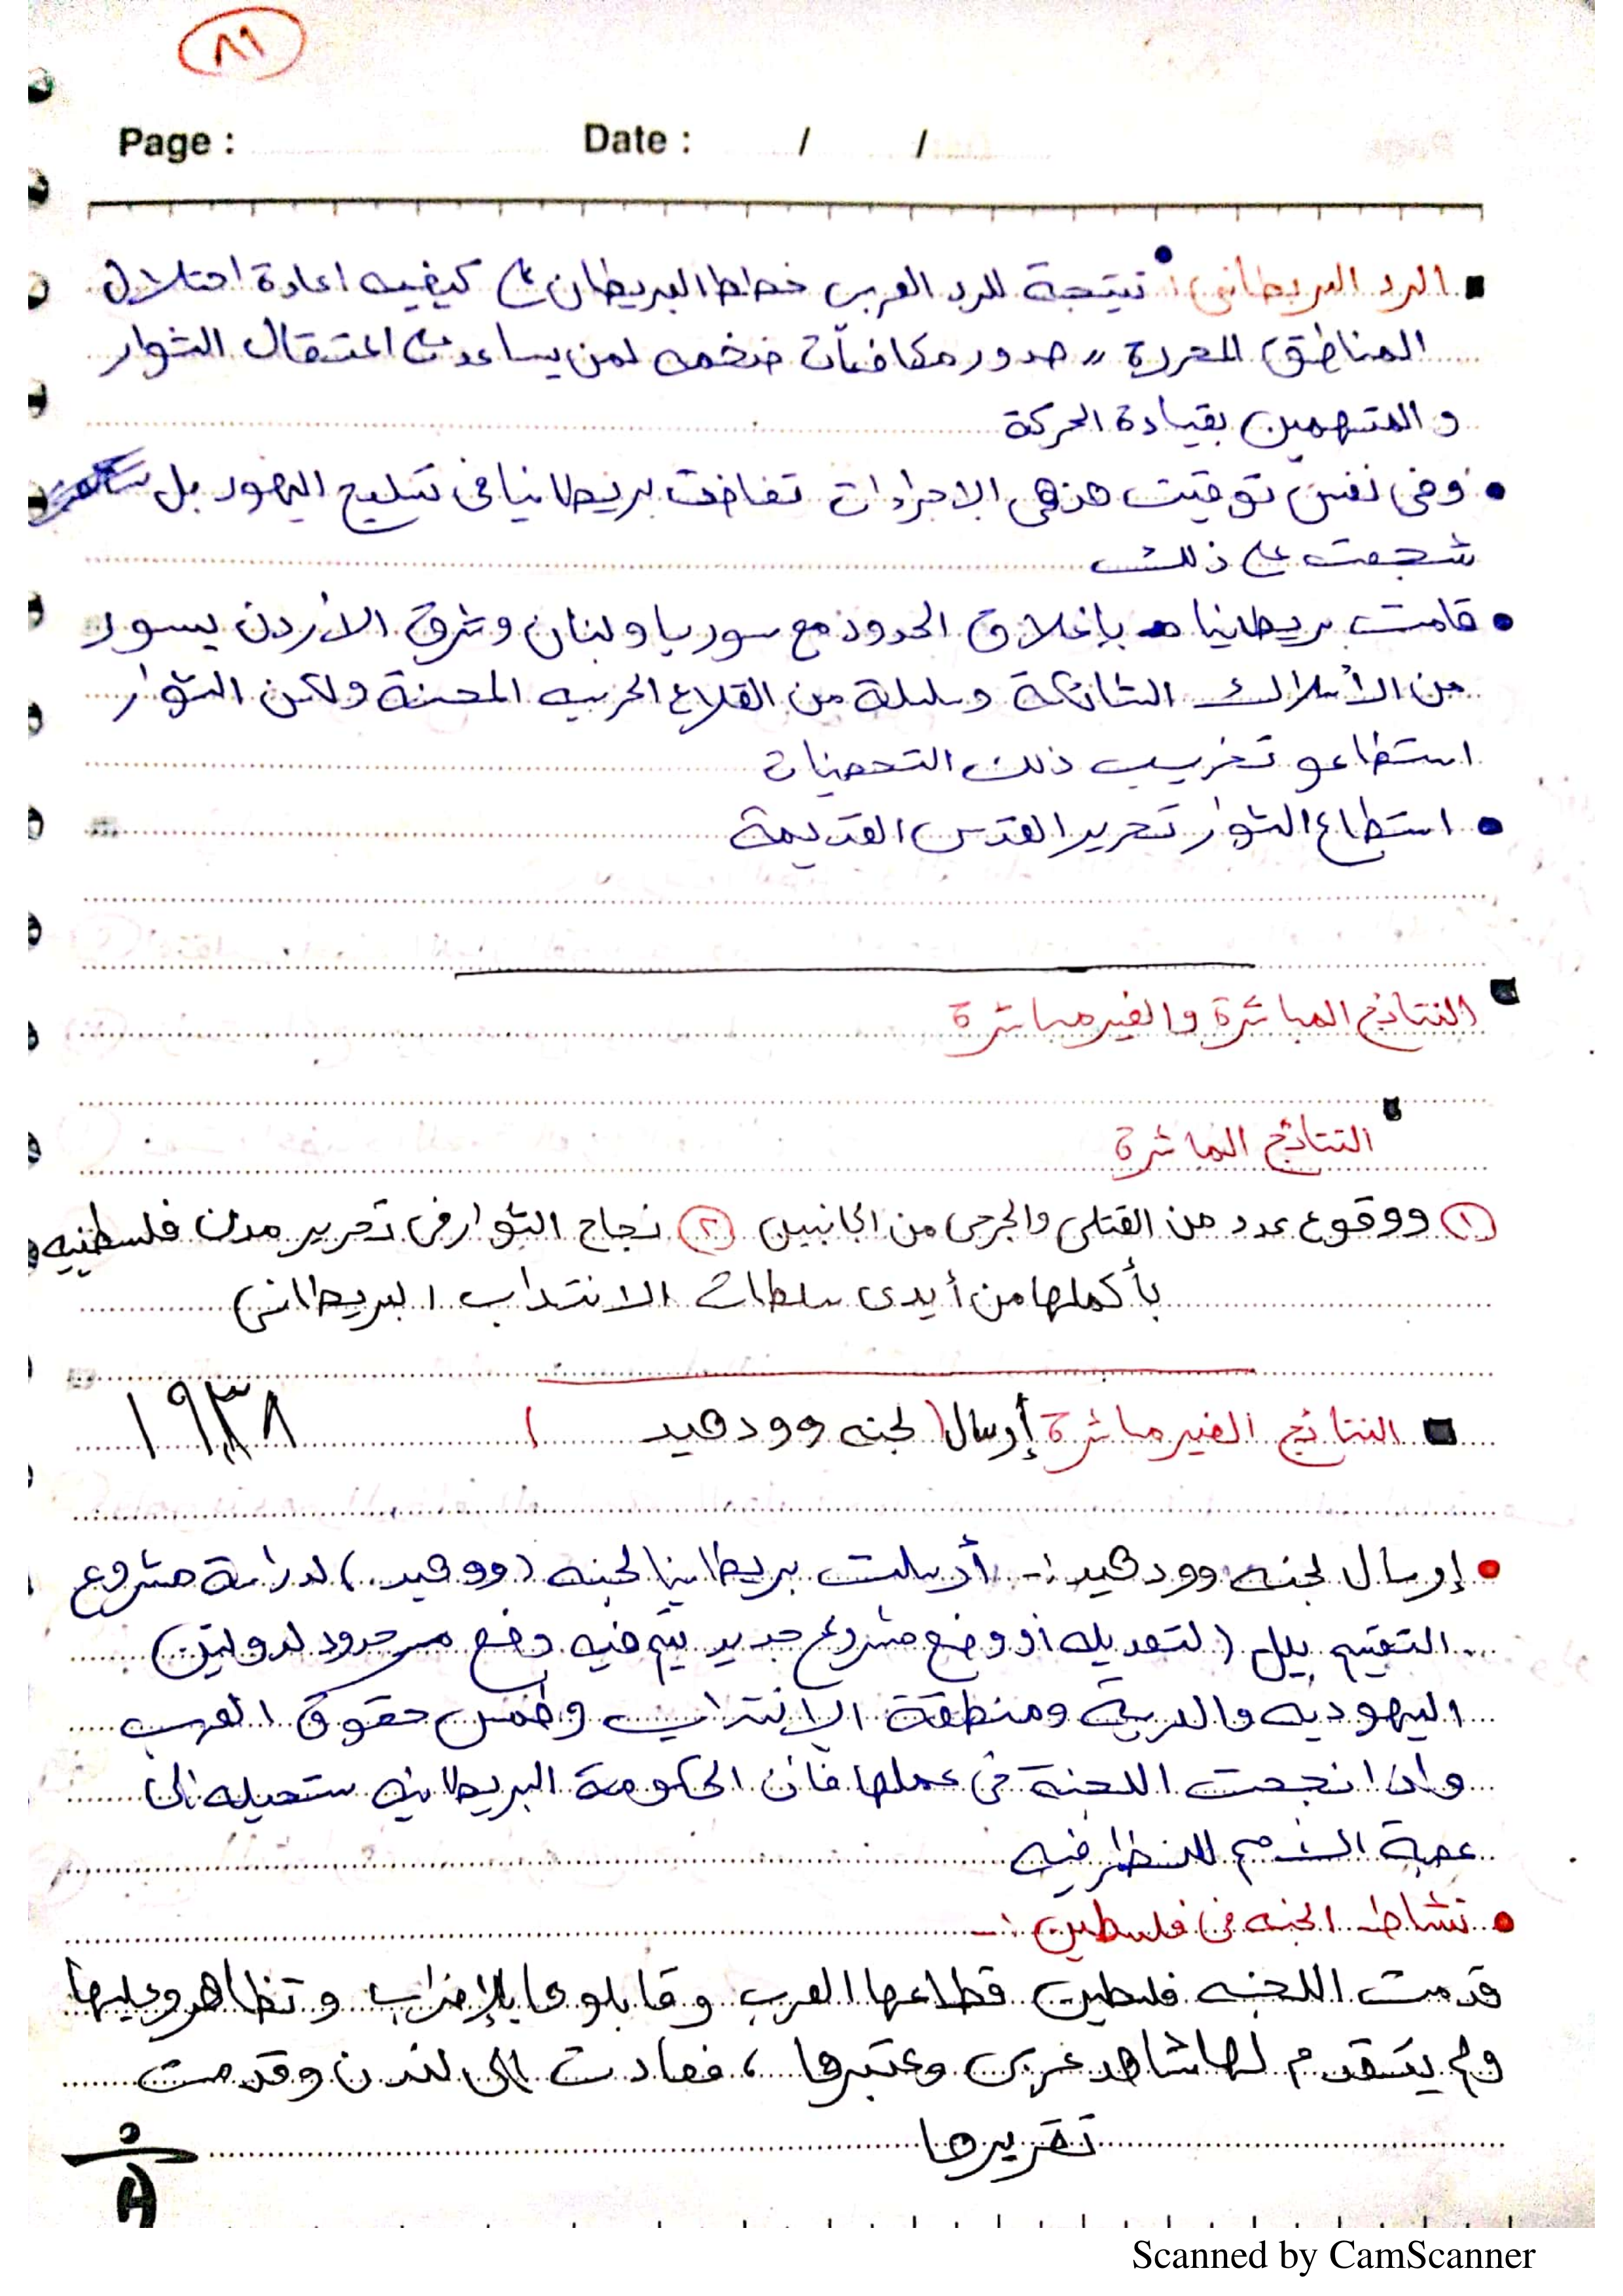 ٨٦
Page : Date : / /
▪ الرد البريطاني : نتيجة للرد العربي خطط البريطان على كيفيه اعادة احتلال
المناطق المحررة ,, صدور مكافئات ضخمه لمن يساعد على اعتقال الثوار
و المتهمين بقيادة الحركة
• وفي نفس توقيت هذهي الاجراءات تغاضت بريطانيا في تسليح اليهود بل
شجعت على ذلك
• قامت بريطانيا بإغلاق الحدود مع سوريا و لبنان وشرق الأردن بسور
من الأسلاك الشائكة وسلسلة من القلاع الحربيه المحصنة ولكن الثوار
استطاعو تخريب ذلك التحصينات
• استطاع الثوار تحرير القدس القديمة
▪ النتائج المباشرة والغير مباشرة
▪ النتائج المباشرة
(١) ووقوع عدد من القتلى والجرحى من الجانبين (٢) نجاح الثوار في تحرير مدن فلسطنيه
بأكملها من أيدى سلطات الانتداب البريطاني
▪ النتائج الغير مباشرة (إرسال لجنه وود هيد ) ١٩٣٨
• إرسال لجنه وود هيد :- أرسلت بريطانيا لجنه (وو هيد) لدراسة مشروع
التقسيم بيل (لتعديله أو وضع مشروع جديد يتم فيه وضع حدود لدولتين
اليهوديه والعربية ومنطقة الانتداب وطمس حقوق العرب
واذا نجحت اللجنة في عملها فأن الحكومة البريطانيه ستحيله الى
عصبة الأمم للنظر فيه
• نشاط الجنه في فلسطين :-
قدمت اللجنه فلسطين قطاعها العرب و قابلوها بالإضراب و تظاهرو عليها
ولم يتقدم لها شاهد عربى وعتبرها ، فعادت الى لندن وقدمت
تقريرها
Scanned by CamScanner